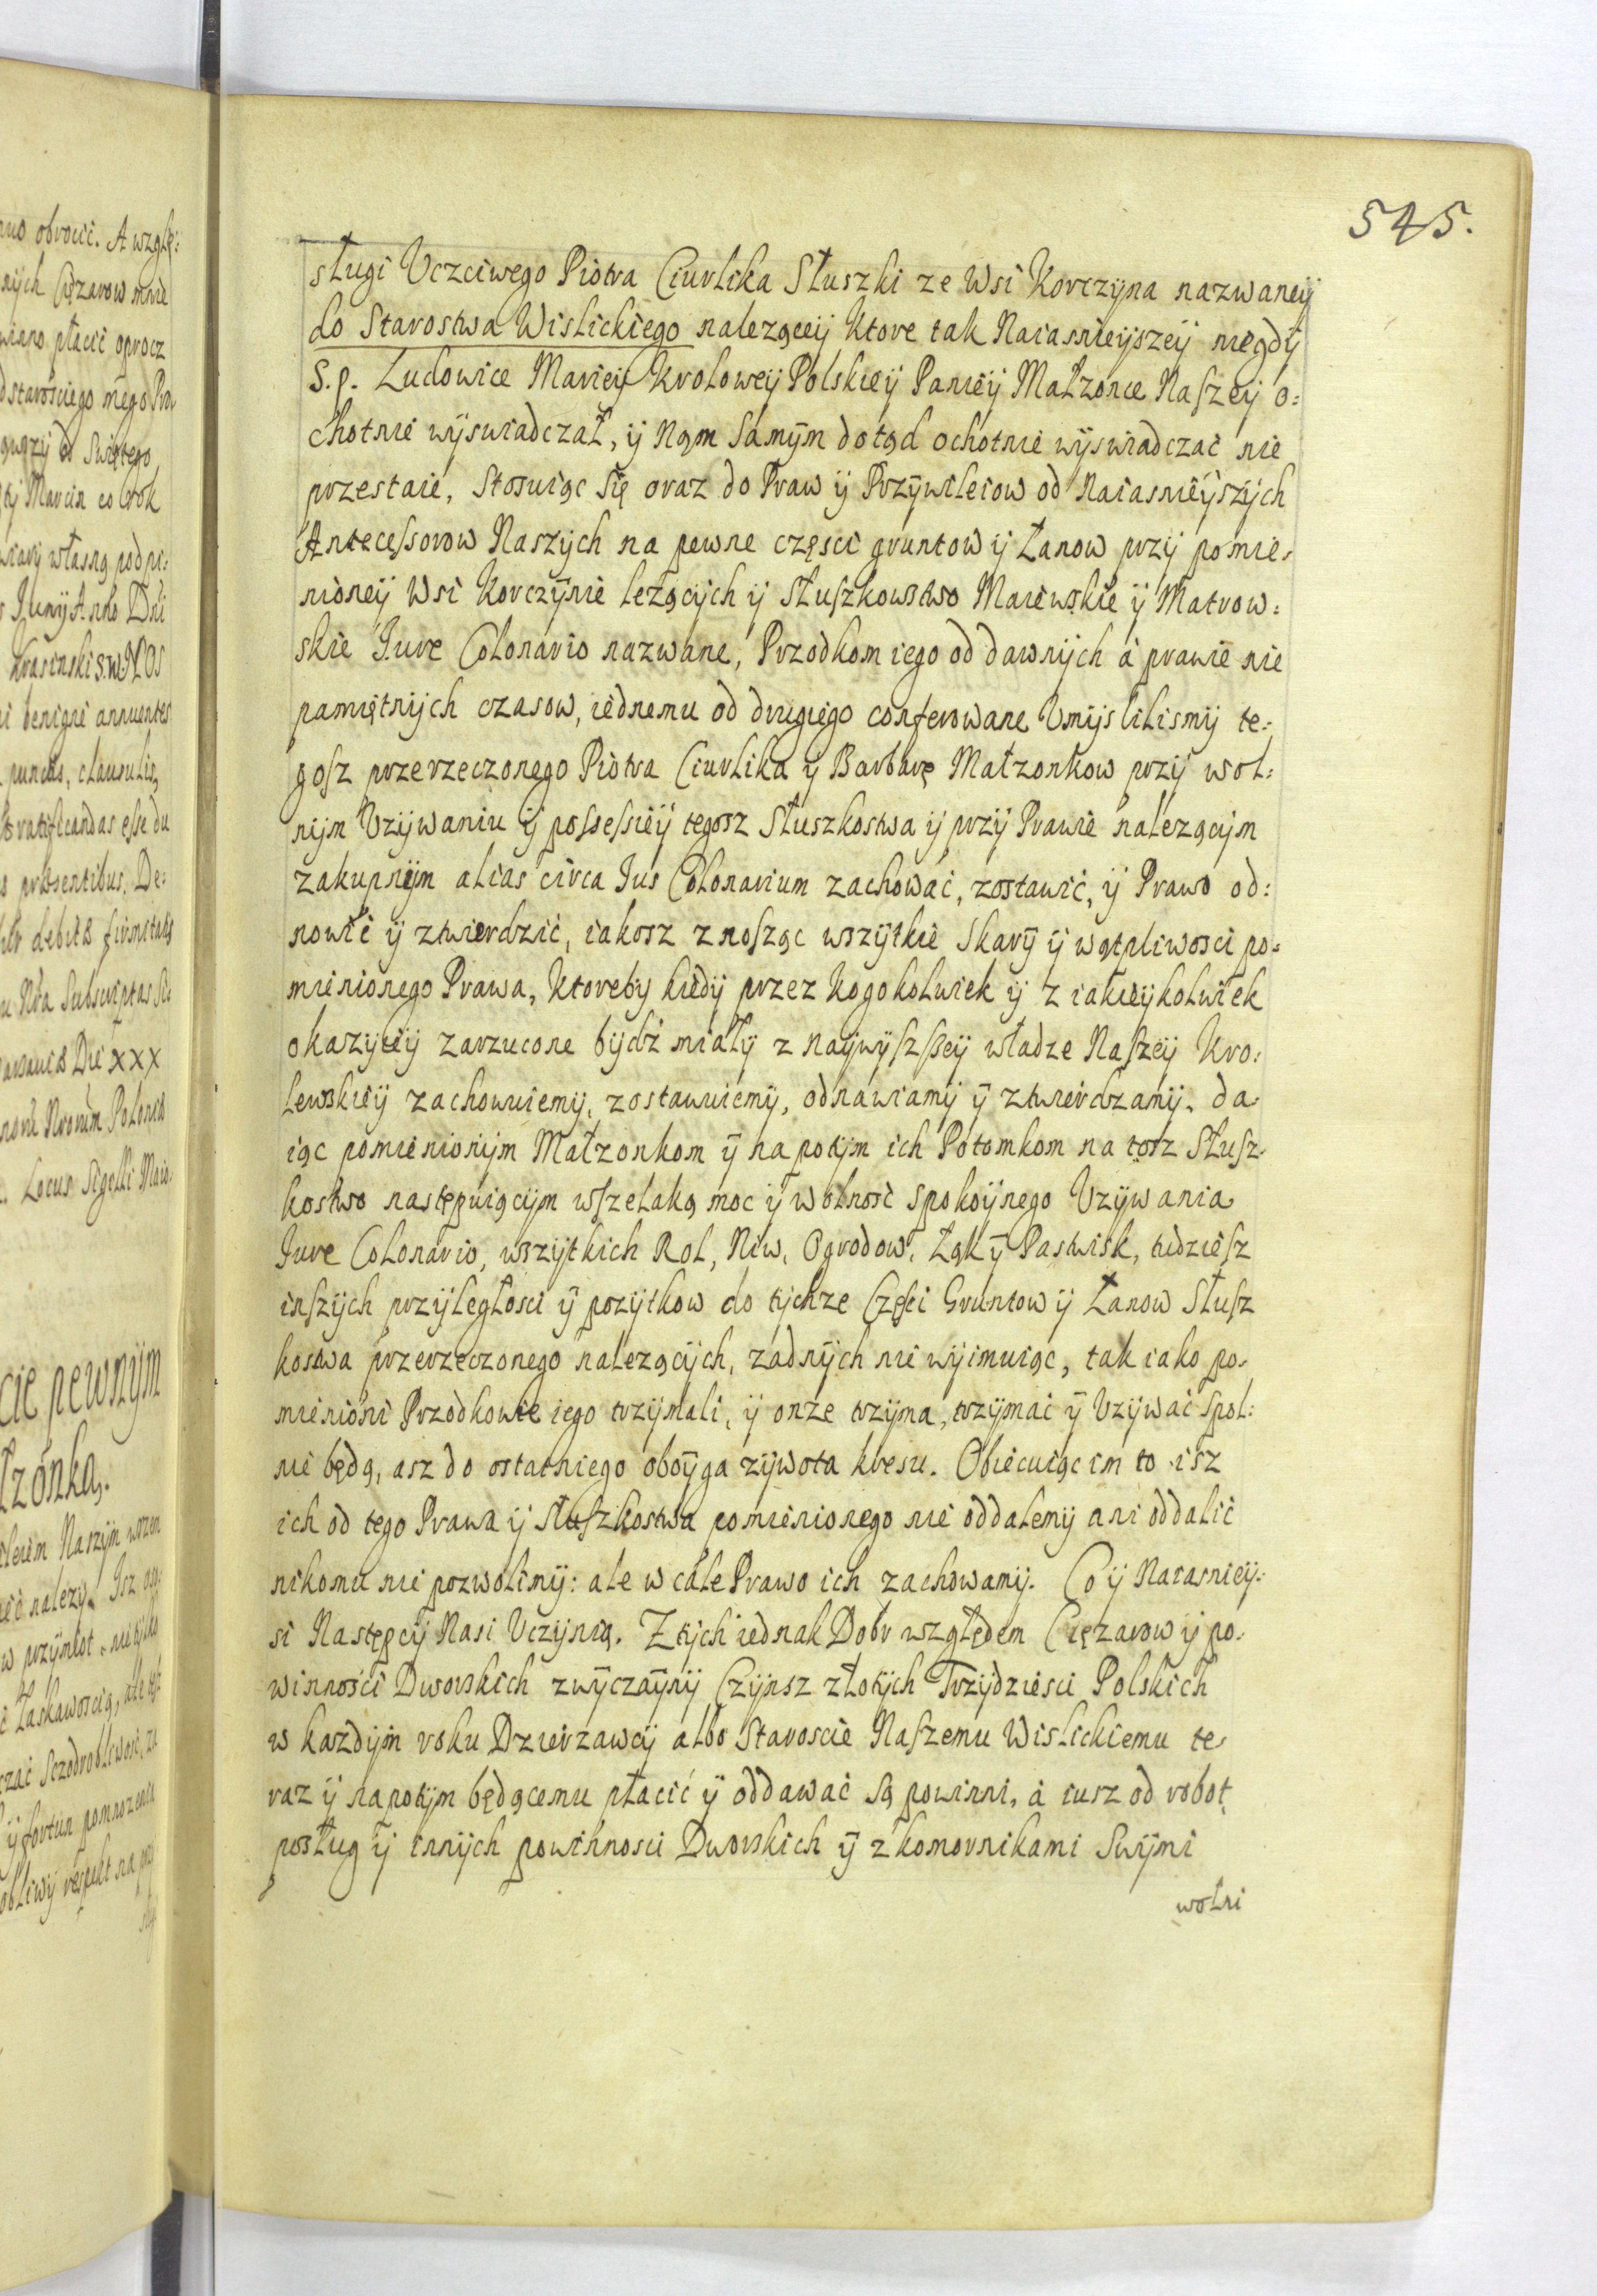 545.
sługi Uczciwego Piotra Ciurlika Słuszki ze Wsi Korczyna nazwaneÿ
do Starostwa Wislickiego nalezącej ktore tak Naiasnieÿszeÿ niegdÿ
S. p. Ludowice Marieÿ Kroloweÿ Polskieÿ Panieÿ Małzonce Naszeÿ o:
chotnie wÿswiadczał, ÿ Nąm Samÿm dotąd ochotnie wÿswiadczać nie
przestaie, Stosuiąc Się oraz do Praw ÿ Przÿwileiow od Naiasnieÿszÿch
Antecessorow Naszÿch na pewne częsci gruntow ÿ Łanow przÿ pomie:
nioneÿ Wsi Korczÿnie leżącÿch ÿ Słuszkowstwo Maiewskie ÿ Matrow:
skie Jure Colonario nazwane, Przodkom iego od dawnÿch á prawie nie
pamiętnÿch czasow, iednemu od drugiego conferowane Vmÿslilismÿ te:
gosz przerzeczonego Piotra Ciurlika ÿ Barbarę Małzonkow przÿ wol:
nÿm Vzÿwaniu ÿ possessiëÿ tegosz Słuszkostwa ÿ przÿ Prawie nalezącÿm
zakupnÿm alias circa Jus Colonarium zachować, zostawić, ÿ Prawo od:
nowić ÿ ztwierdzić, iakosz znosząc wszÿtkie Skarÿ ÿ wątpliwosci po:
mienionego Prawa, ktoreby kiedÿ przez kogokolwiek ÿ z iakieÿkolwiek
okazÿieÿ zarzucone bÿdź miałÿ z naÿwÿszsseÿ władze Naszeÿ Kro:
lewskieÿ zachowuiemÿ, zostawuiemÿ, odnawiamÿ ÿ ztwierdzamÿ. da:
iąc pomienionÿm Małzonkom ÿ na potÿm ich Potomkom na tosz Słusz:
kostwo następuiącÿm wszelaką moc ÿ wolność spokoÿnego Vzÿwania
Jure Colonario, wszÿtkich Rol, Niw, Ogrodow, Łąk ÿ Pastwisk, tudziesz
inszÿch przÿległosci ÿ pozÿtkow do tÿchze Częsci Gruntow ÿ Łanow Słusz
kostwa przerzeczonego nalezącÿch, żadnÿch nie wÿimuiąc, tak iako po:
mienioni Przodkowie iego trzÿmali, ÿ onże trzÿma, trzÿmać ÿ Vzÿwać spol:
nie będą, asz do ostatniego oboÿga zÿwota kresu. Obiecuiąc im to isz
ich od tego Prawa ÿ Słuszkostwa pomienionego nie oddalemÿ ani oddalić
nikomu nie pozwolimÿ: ale w cale Prawo ich zachowamÿ. Co ÿ Naiasnieÿ:
si Następcÿ Nasi Vczÿnią. Z tÿch iednak Dobr względem Cięzarow ÿ po:
winności Dworskich zwÿczaÿnÿ Czÿnsz złotÿch Trzÿdziesci Polskich
w kazdÿm roku Dzierzawcÿ albo Staroscie Naszemu Wislickiemu te:
raz ÿ napotÿm będącemu płacić ÿ oddawać są powinni, á iusz od robot
posług ÿ innÿch powinnosci Dworskich ÿ z komornikami Swÿmi
wolni